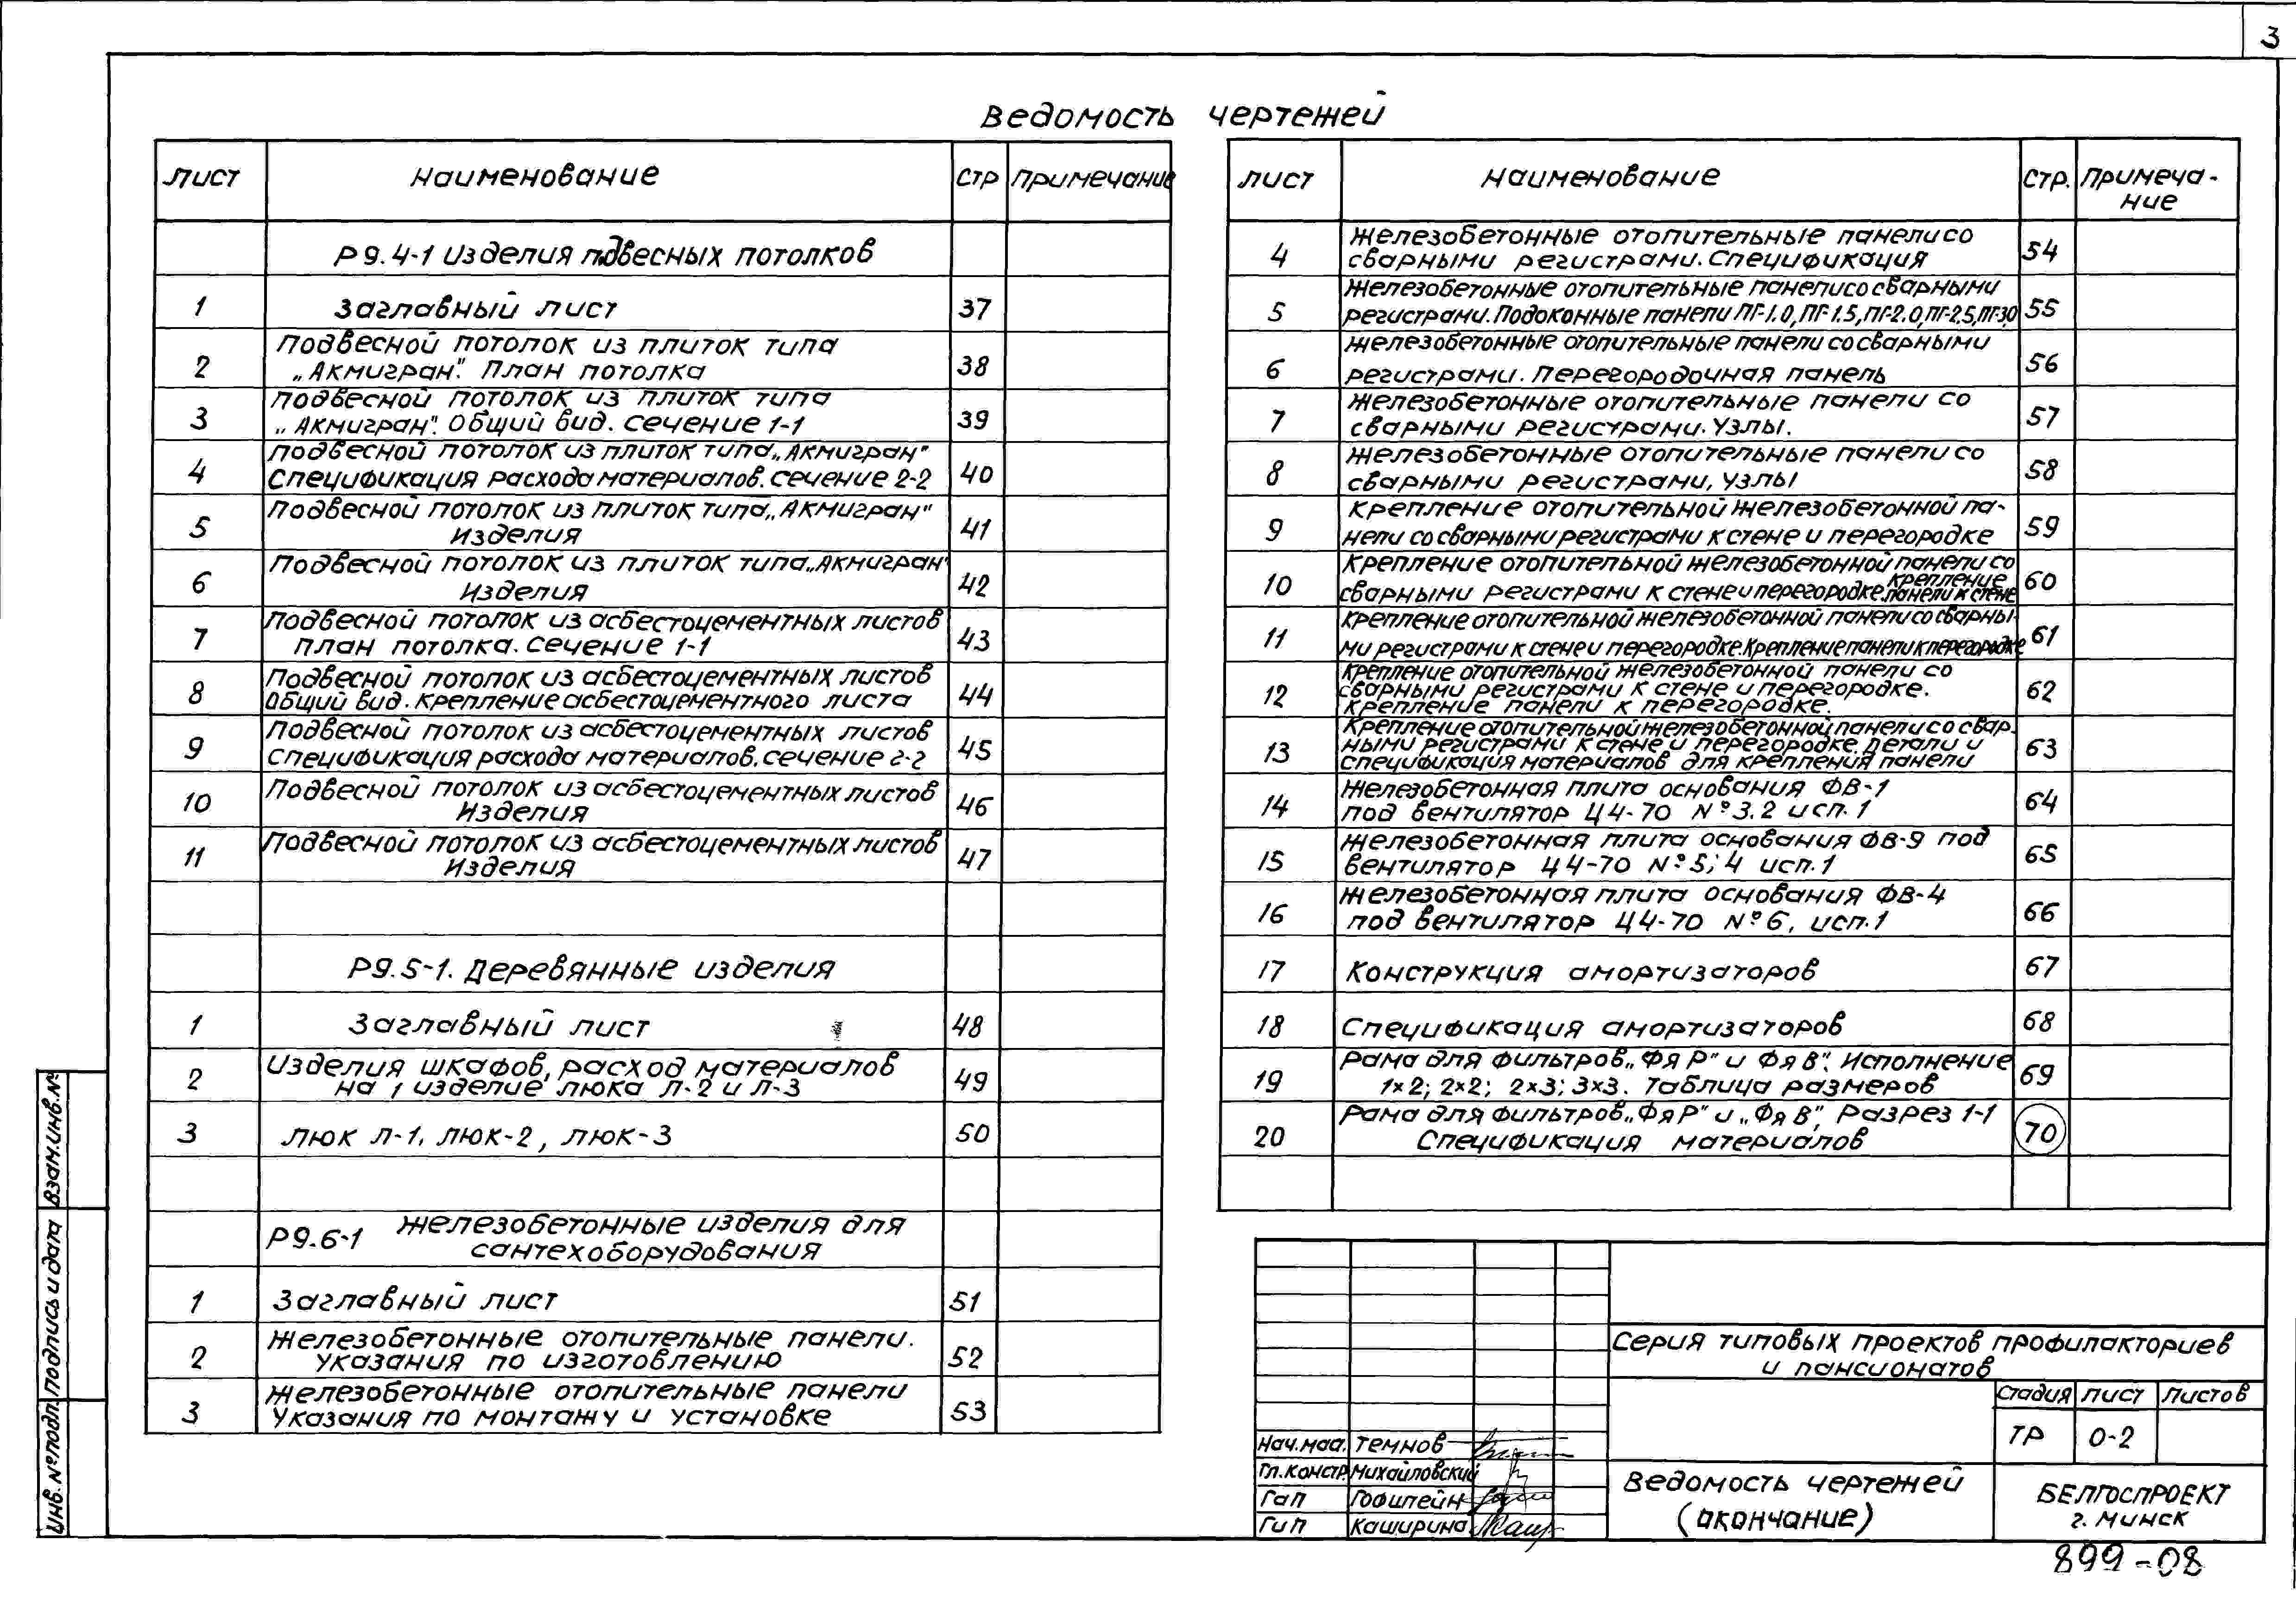 3
Ведомость чертежей
Лист Наименование Стр Примечание
Р9.4-1 Изделия подвесных потолков
1 Заглавный лист 37
2 Подвесной потолок из плиток типа
„Акмигран". План потолка 38
3 Подвесной потолок из плиток типа
„Акмигран". Общий вид. Сечение 1-1 39
4 Подвесной потолок из плиток типа „Акмигран"
Спецификация расхода материалов. Сечение 2-2 40
5 Подвесной потолок из плиток типа „Акмигран"
Изделия 41
6 Подвесной потолок из плиток типа „Акмигран"
Изделия 42
7 Подвесной потолок из асбестоцементных листов
План потолка. Сечение 1-1 43
8 Подвесной потолок из асбестоцементных листов
Общий вид. Крепление асбестоцементного листа 44
9 Подвесной потолок из асбестоцементных листов
Спецификация расхода материалов. Сечение 2-2 45
10 Подвесной потолок из асбестоцементных листов
Изделия 46
11 Подвесной потолок из асбестоцементных листов
Изделия 47
Р9.5-1. Деревянные изделия
1 Заглавный лист 48
2 Изделия шкафов, расход материалов
на 1 изделие люка Л-2 и Л-3 49
3 Люк Л-1, люк-2, люк-3 50
Р9.6-1 Железобетонные изделия для
сантехоборудования
1 Заглавный лист 51
2 Железобетонные отопительные панели.
Указания по изготовлению 52
3 Железобетонные отопительные панели
Указания по монтажу и установке 53
Лист Наименование Стр. Примеча-
ние
4 Железобетонные отопительные панели со
сварными регистрами. Спецификация 54
5 Железобетонные отопительные панели со сварными
регистрами. Подоконные панели ПГ-1.0, ПГ-1.5, ПГ-2.0, ПГ-2.5, ПГ-3.0 55
6 Железобетонные отопительные панели со сварными
регистрами. Перегородочная панель 56
7 Железобетонные отопительные панели со
сварными регистрами. Узлы. 57
8 Железобетонные отопительные панели со
сварными регистрами, узлы 58
9 Крепление отопительной железобетонной па-
нели со сварными регистрами к стене и перегородке 59
10 Крепление отопительной железобетонной панели со
сварными регистрами к стене и перегородке. Крепление панели к стене 60
11 Крепление отопительной железобетонной панели со сварны-
ми регистрами к стене и перегородке. Крепление панели к перегородке 61
12 Крепление отопительной железобетонной панели со
сварными регистрами к стене и перегородке.
Крепление панели к перегородке. 62
13 Крепление отопительной железобетонной панели со свар-
ными регистрами к стене и перегородке. Детали и
спецификация материалов для крепления панели 63
14 Железобетонная плита основания ФВ-1
под вентилятор Ц4-70 №3.2 исп.1 64
15 Железобетонная плита основания ФВ-9 под
вентилятор Ц4-70 №5; 4 исп.1 65
16 Железобетонная плита основания ФВ-4
под вентилятор Ц4-70 №6, исп.1 66
17 Конструкция амортизаторов 67
18 Спецификация амортизаторов 68
19 Рама для фильтров „ФяР" и ФяВ". Исполнение
1×2; 2×2; 2×3; 3×3. Таблица размеров 69
20 Рама для фильтров „ФяР" и „ФяВ", Разрез 1-1
Спецификация материалов 70
Серия типовых проектов профилакториев
и пансионатов
Стадия Лист Листов
ТР О-2
Нач.маст. Темнов
Гл.констр. Михайловский
ГАП Гофштейн
ГИП Каширина
Ведомость чертежей
(окончание)
БЕЛГОСПРОЕКТ
г. Минск
899-08
Взам.инв.№
Подпись и дата
Инв.№подл.